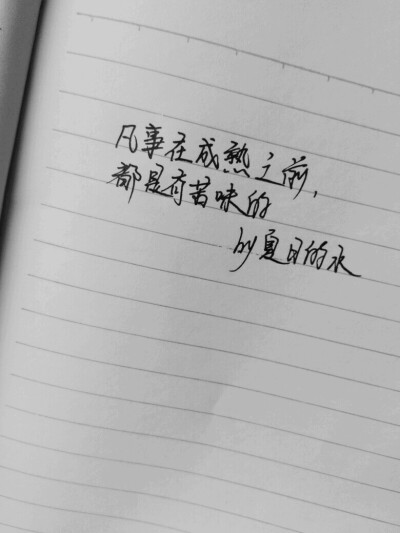 凡事在成熟之前，
都是有苦味的
by夏日的水